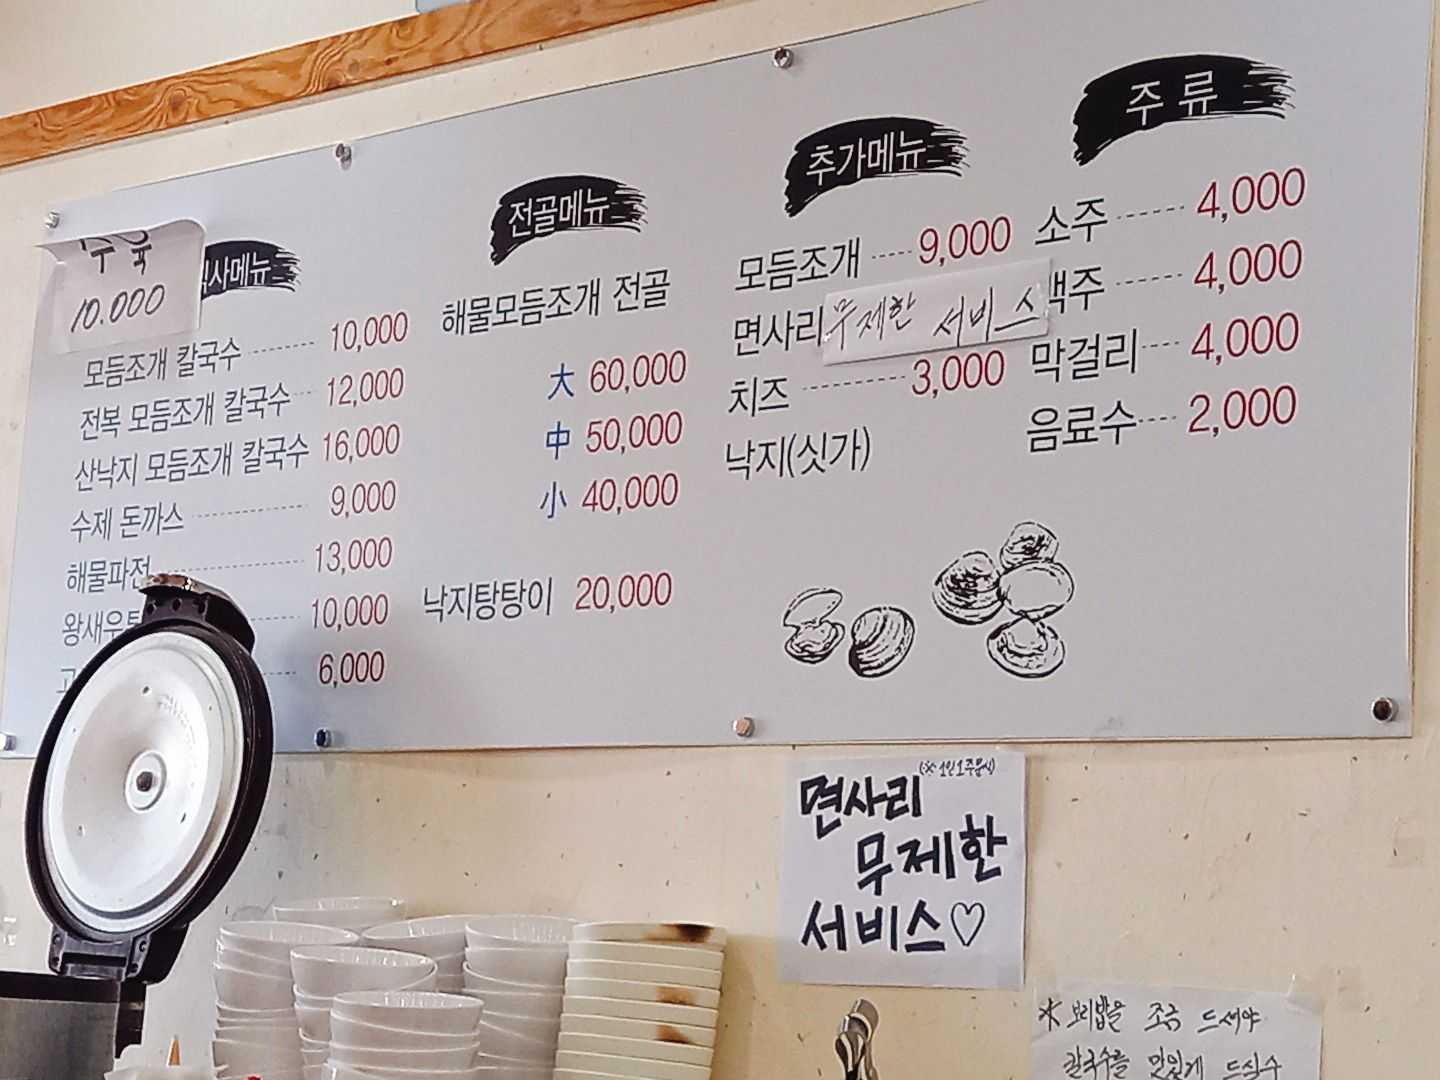 수육
10.000
식사메뉴
모듬조개 칼국수 10,000
전복 모듬조개 칼국수 12,000
산낙지 모듬조개 칼국수 16,000
수제 돈까스 9,000
해물파전 13,000
왕새우튀 10,000
6,000
전골메뉴
해물모듬조개 전골
大 60,000
中 50,000
小 40,000
낙지탕탕이 20,000
추가메뉴
모듬조개 9,000
면사리 무제한 서비스
치즈 3,000
낙지(싯가)
주류
소주 4,000
맥주 4,000
막걸리 4,000
음료수 2,000
(※1인1주문시)
면사리
무제한
서비스♡
※ 보리밥을 조금 드셔야
칼국수를 맛있게 드실수